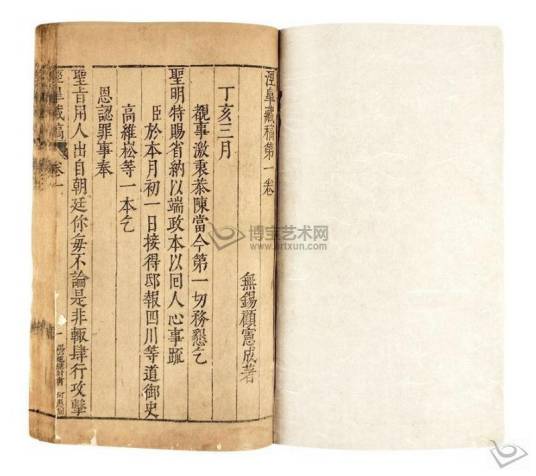 涇臯藏稿第一卷
無錫顧憲成著
丁亥三月
覩事激衷恭陳當今第一切務懇乞
聖明特賜省納以端政本以回人心事疏
臣於本月初一日接得邸報四川等道御史
高維崧等一本乞
恩認罪事奉
聖旨用人出自朝廷你每不論是非輒肆行攻擊
涇臯藏稿 卷一
一
博宝艺术网
www.artxun.com